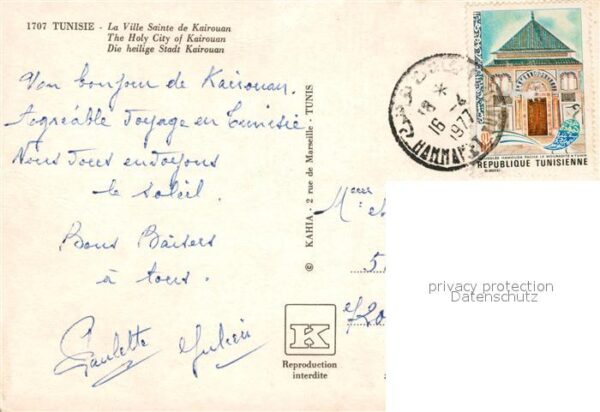 1707 TUNISIE - La Ville Sainte de Kairouan
The Holy City of Kairouan
Die heilige Stadt Kairouan
Bon bonjour de Kairouan.
Agréable voyage en Tunisie
Nous vous envoyons
le soleil.
Bons Baisers
à tous.
Paulette Julien
© KAHIA - 2 rue de Marseille - TUNIS
K
Reproduction
interdite
18
16
1977
HAMMAMET
REPUBLIQUE TUNISIENNE
Mr et
5
720
privacy protection
Datenschutz